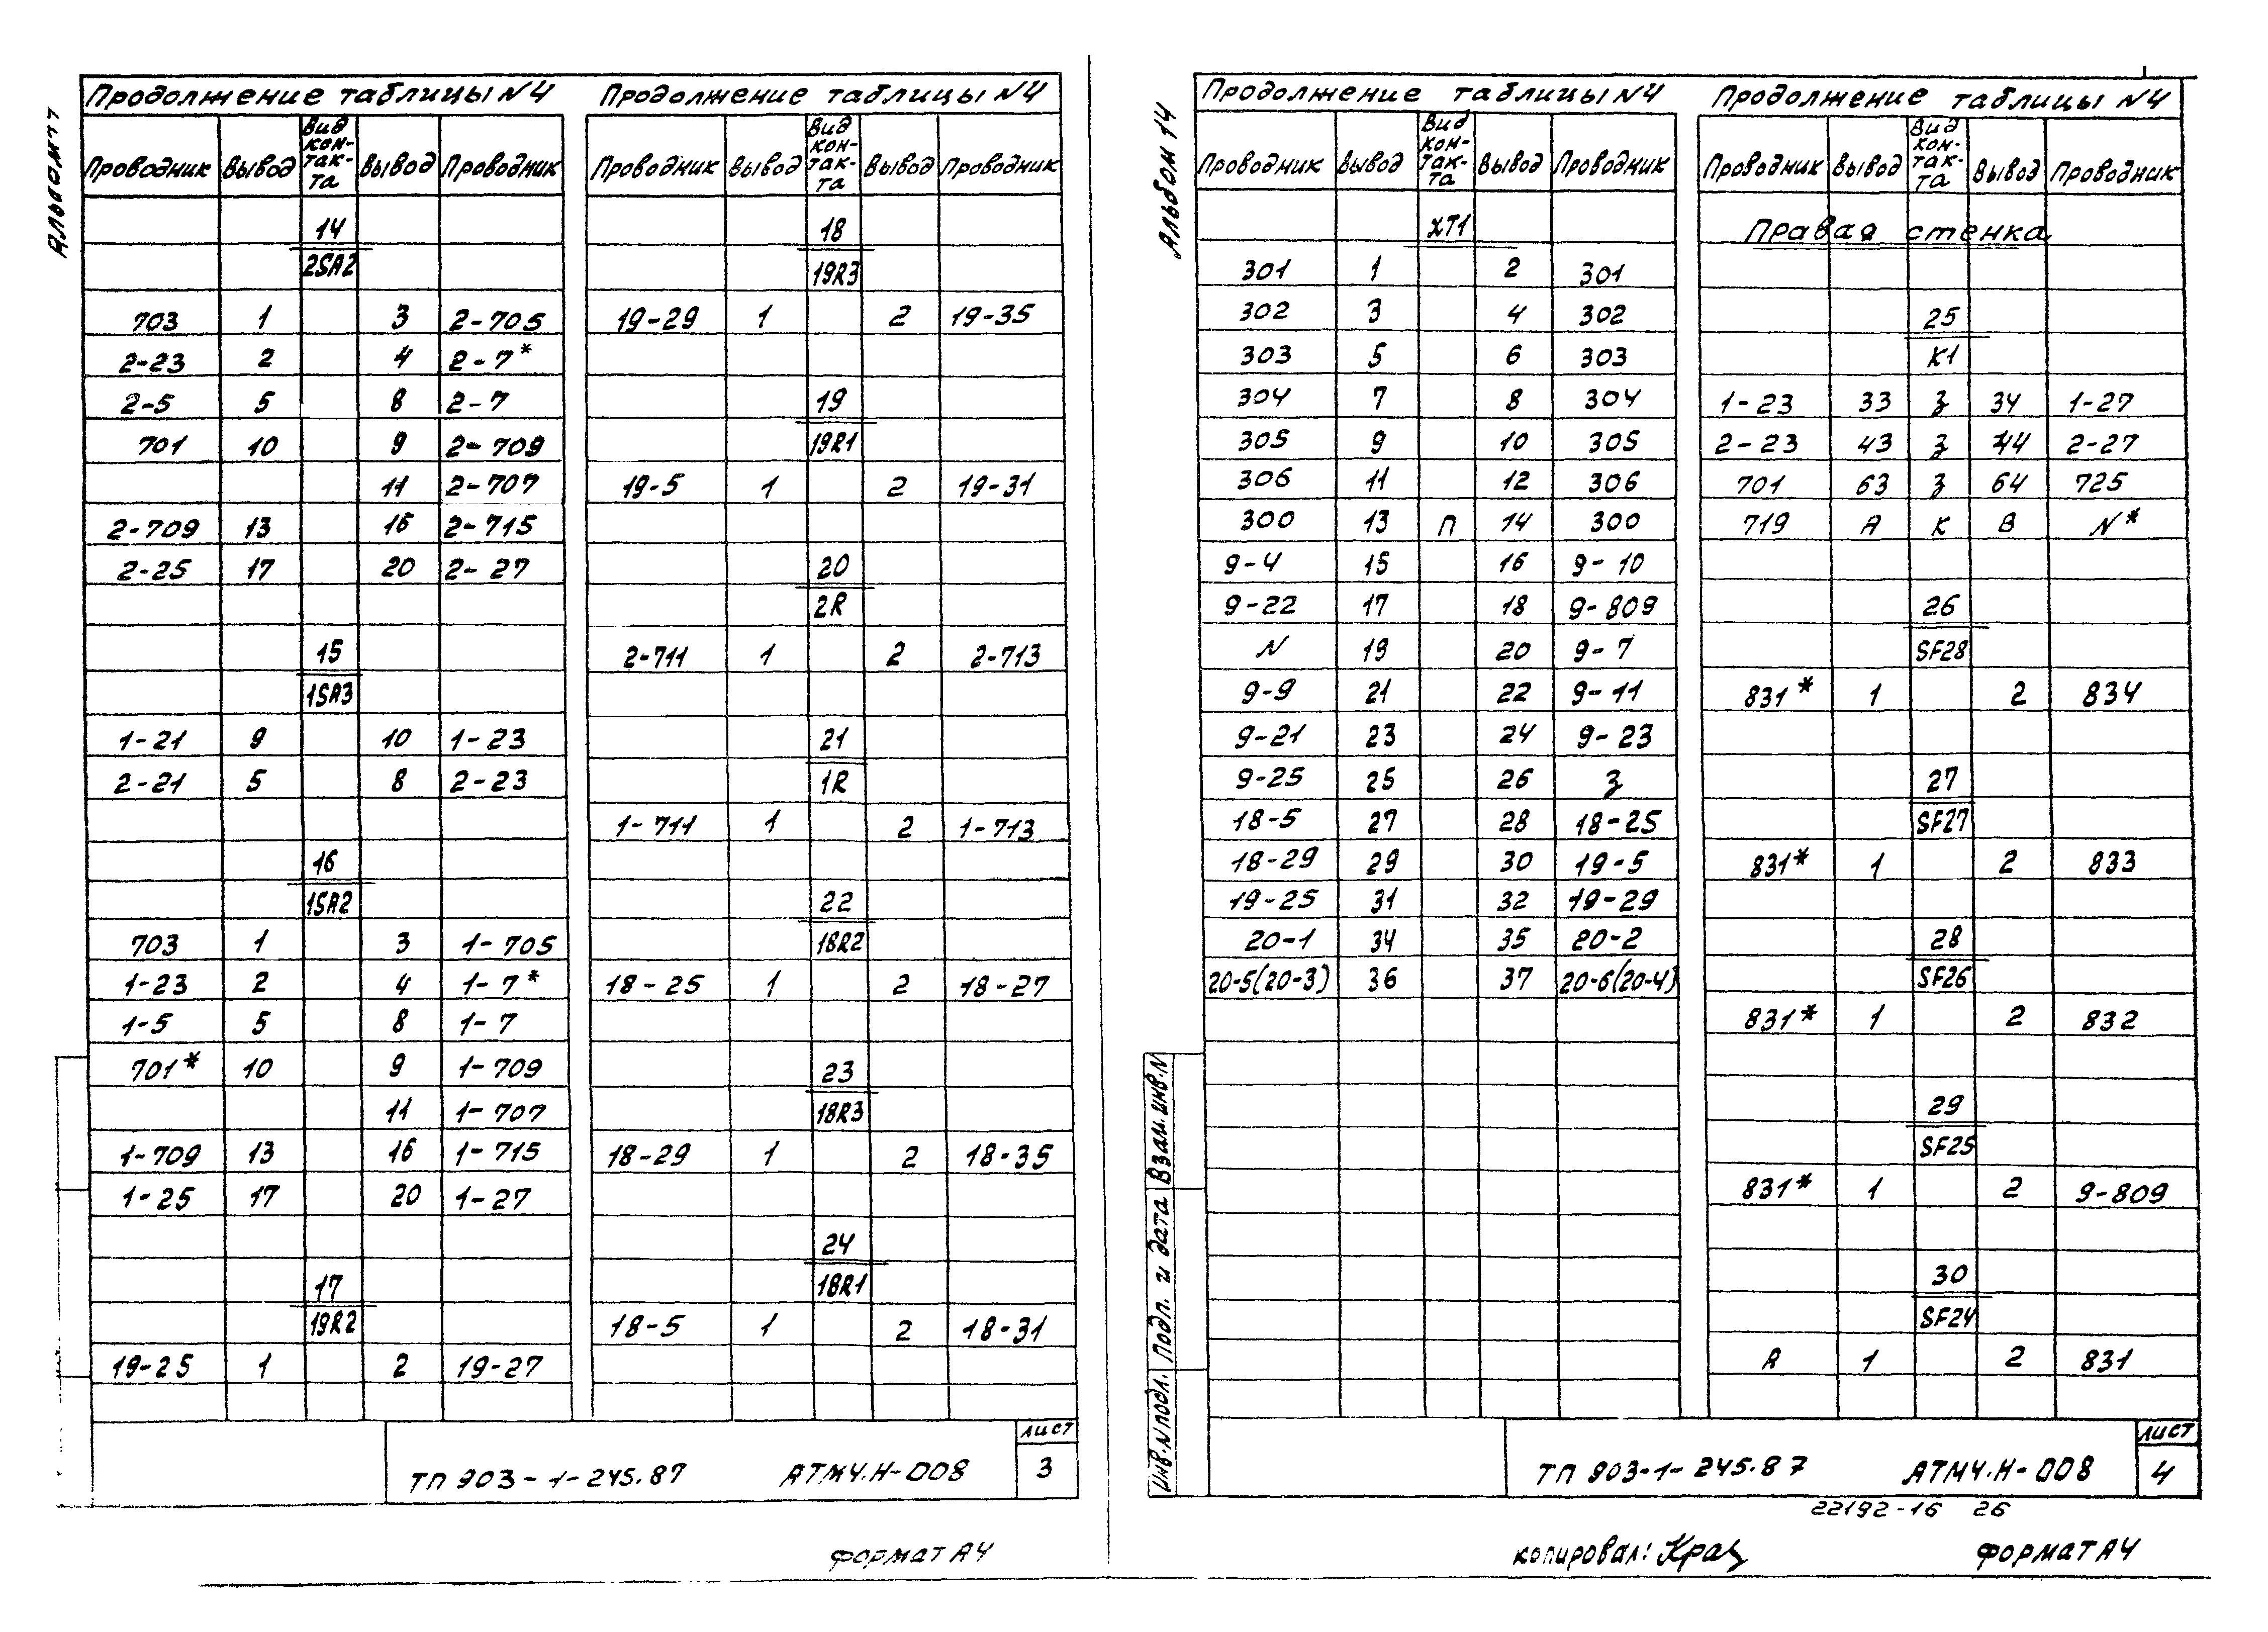 Продолжение таблицы N4
Проводник Вывод Вид кон-так-та Вывод Проводник
14
2SA2
703 1 3 2-705
2-23 2 4 2-7*
2-5 5 8 2-7
701 10 9 2-709
11 2-707
2-709 13 16 2-715
2-25 17 20 2-27
15
1SA3
1-21 9 10 1-23
2-21 5 8 2-23
16
1SA2
703 1 3 1-705
1-23 2 4 1-7*
1-5 5 8 1-7
701* 10 9 1-709
11 1-707
1-709 13 16 1-715
1-25 17 20 1-27
17
19R2
19-25 1 2 19-27
Продолжение таблицы N4
Проводник Вывод Вид кон-так-та Вывод Проводник
18
19R3
19-29 1 2 19-35
19
19R1
19-5 1 2 19-31
20
2R
2-711 1 2 2-713
21
1R
1-711 1 2 1-713
22
18R2
18-25 1 2 18-27
23
18R3
18-29 1 2 18-35
24
18R1
18-5 1 2 18-31
ТП 903-1-245.87 АТМ4.Н-008
лист
3
Формат А4
Альбом 14
Продолжение таблицы N4
Проводник Вывод Вид кон-так-та Вывод Проводник
XT1
301 1 2 301
302 3 4 302
303 5 6 303
304 7 8 304
305 9 10 305
306 11 12 306
300 13 П 14 300
9-4 15 16 9-10
9-22 17 18 9-809
N 19 20 9-7
9-9 21 22 9-11
9-21 23 24 9-23
9-25 25 26 З
18-5 27 28 18-25
18-29 29 30 19-5
19-25 31 32 19-29
20-1 34 35 20-2
20-5(20-3) 36 37 20-6(20-4)
Продолжение таблицы N4
Проводник Вывод Вид кон-так-та Вывод Проводник
Правая стенка
25
К1
1-23 33 З 34 1-27
2-23 43 З 44 2-27
701 63 З 64 725
719 А К В N*
26
SF28
831* 1 2 834
27
SF27
831* 1 2 833
28
SF26
831* 1 2 832
29
SF25
831* 1 2 9-809
30
SF24
А 1 2 831
Инв.N подл. Подп. и дата Взам.инв.N
ТП 903-1-245.87 АТМ4.Н-008
лист
4
22192-16 26
копировал: Крац
Формат А4